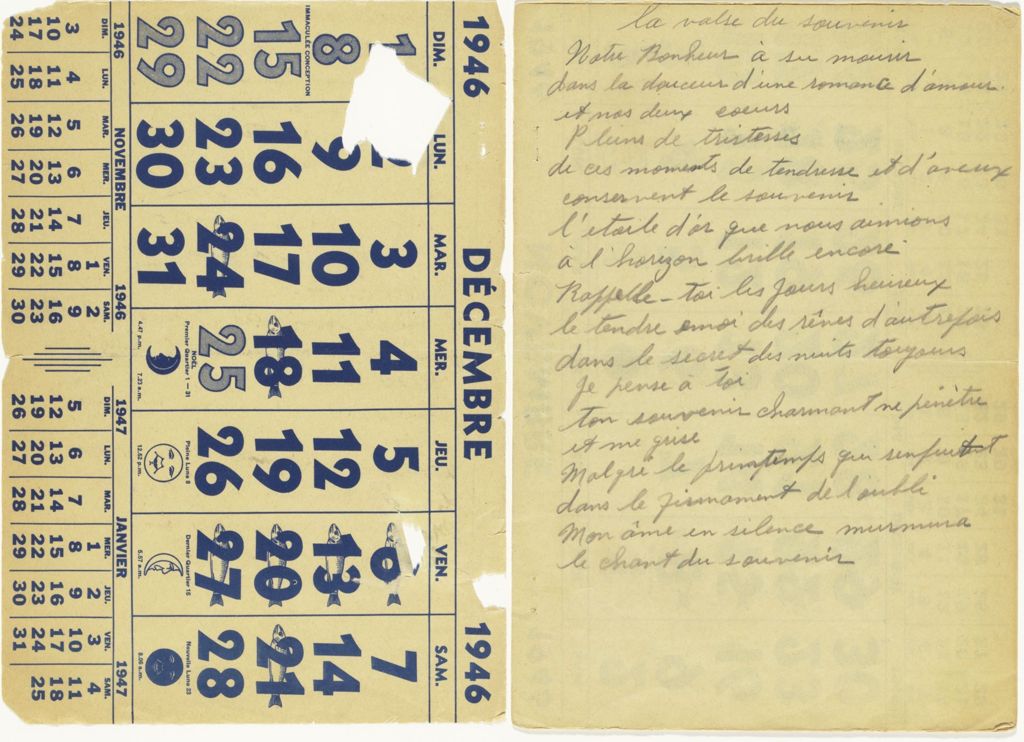 1946 DÉCEMBRE 1946
DIM. LUN. MAR. MER. JEU. VEN. SAM.
1 2 3 4 5 6 7
8 9 10 11 12 13 14
IMMACULÉE CONCEPTION
15 16 17 18 19 20 21
22 23 24 25 26 27 28
NOËL
29 30 31
Premier Quartier 1 — 31
4.47 p.m. 7.23 a.m.
Pleine Lune 8
12.52 p.m.
Dernier Quartier 15
5.57 a.m.
Nouvelle Lune 23
8.06 a.m.
1946 NOVEMBRE 1946
DIM. LUN. MAR. MER. JEU. VEN. SAM.
1 2
3 4 5 6 7 8 9
10 11 12 13 14 15 16
17 18 19 20 21 22 23
24 25 26 27 28 29 30
1947 JANVIER 1947
DIM. LUN. MAR. MER. JEU. VEN. SAM.
1 2 3 4
5 6 7 8 9 10 11
12 13 14 15 16 17 18
19 20 21 22 23 24 25
26 27 28 29 30 31
la valse du souvenir
Notre Bonheur à su mourir
dans la douceur d'une romance d'amour.
et nos deux coeurs
Pleins de tristesses
de ces moments de tendresse et d'aveux
conservent le souvenir
l'etoile d'or que nous aimions
à l'horizon brille encore
Rappelle-toi les jours heureux
le tendre emoi des rêves d'autrefois
dans le secret des nuits toujours
je pense à toi
ton souvenir charmant me pénètre
et me grise
Malgré le printemps qui senfuit
dans le firmament de l'oubli
Mon âme en silence murmura
le chant du souvenir